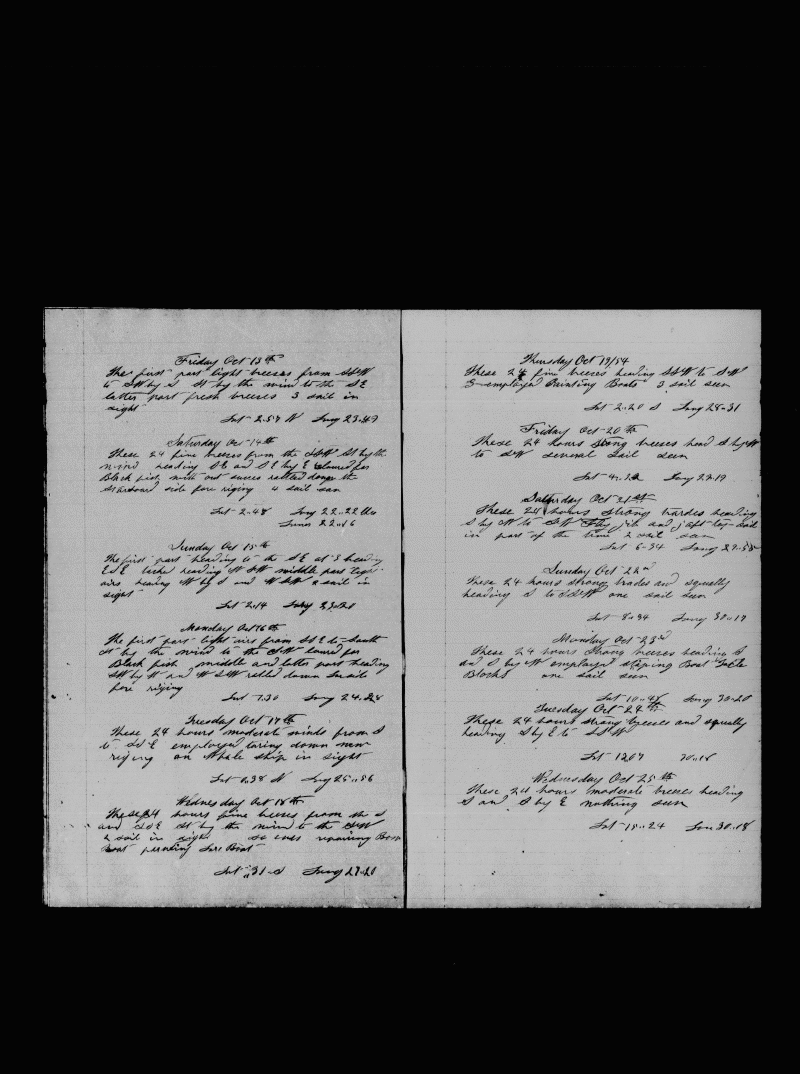 Friday Oct 13th
The first part light breezes from SSW
to SW by S St by the wind to the SE
latter part fresh breezes 3 sail in
sight
Lat 2.57 N Long 23.49
Saturday Oc 14th
These 24 fine breezes from the SSW St by the
wind heading SE and SE by E loured for
Black fish with out succes ratled down the
Starboard side fore riging 4 sail san
Lat 2..48 Long 22..22
22..16
Sunday Oct 15th
The first part heading to the SE at 3 heading
ESE tacked heading W SW middle part light
airs heading W by S and W SW 2 sail in
sight
Lat 2..14 Long 23..20
Monday Oct 16th
The first part light airs from SSE to South
St by the wind to the SW loured for
Black fish middle and latter part heading
SW by W and W SW ratled down
fore riging
Lat 1.30 Long 24..28
Tuesday Oct 17th
These 24 hours moderate winds from S
to SSE employed taring down new
riging on Whale ship in sight
Lat 0..38 N Long 25..56
Wednesday Oct 18th
These 24 hours fine breezes from the S
and SSE St by the wind to the SSW
2 sail in sight so ends repairing Bow
Boat painting Lar Boat
Lat ..31..S Long 27..20
Thursday Oct 19/54
These 24 fine breezes heading SSW to SW
Employed Painting Boats 3 sail seen
Lat 2..20 S Long 28..31
Friday Oct 20th
These 24 hours strong breezes head S by W
to SSW several Sail seen
Lat 4.. Long 29..19
Saturday Oct 21st
These 24 hours strong trades heading
S by W to SW Fly jib and gaft top sail
in part of the time 2 sail san
Lat 6..34 Long 29..58
Sunday Oct 22nd
These 24 hours strong trades and squally
heading S to SSW one sail seen
Lat 8..34 Long 30..19
Monday Oct 23d
These 24 hours strong breezes heading S
and S by W employed straping Boat Tacle
Blocks one sail seen
Lat 10..48 Long 30..20
Tuesday Oct 24th
These 24 hours strong breezes and squally
heading S by E to SSW
Lat 13.07 30..18
Wednesday Oct 25th
These 24 hours moderate breezes heading
S and S by E nothing seen
Lat 15..24 Lon 30..18